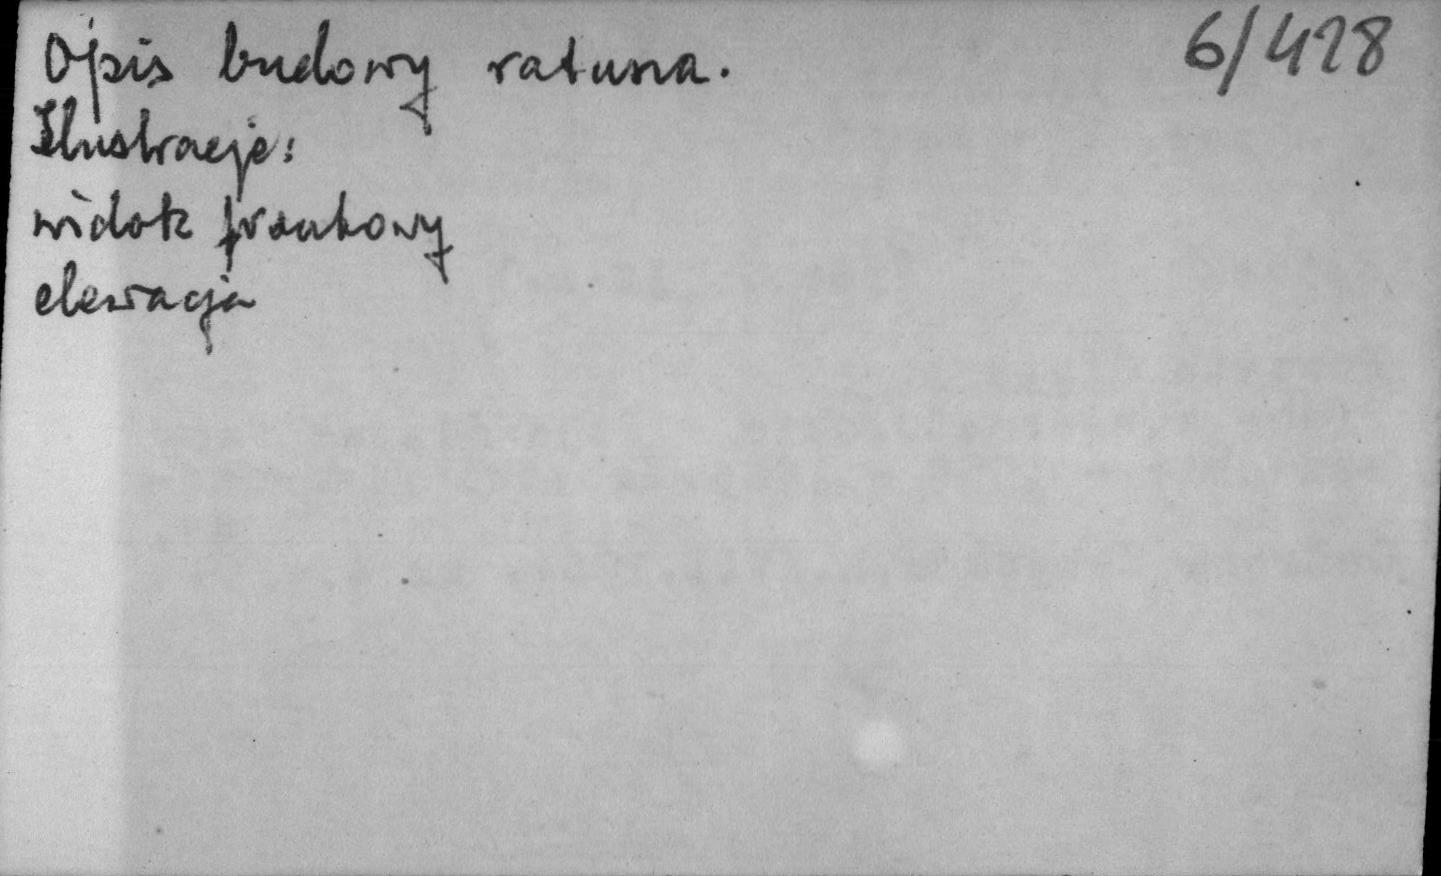 Opis budowy ratusza. 6/428
Ilustracje:
widok frontowy
elewacja